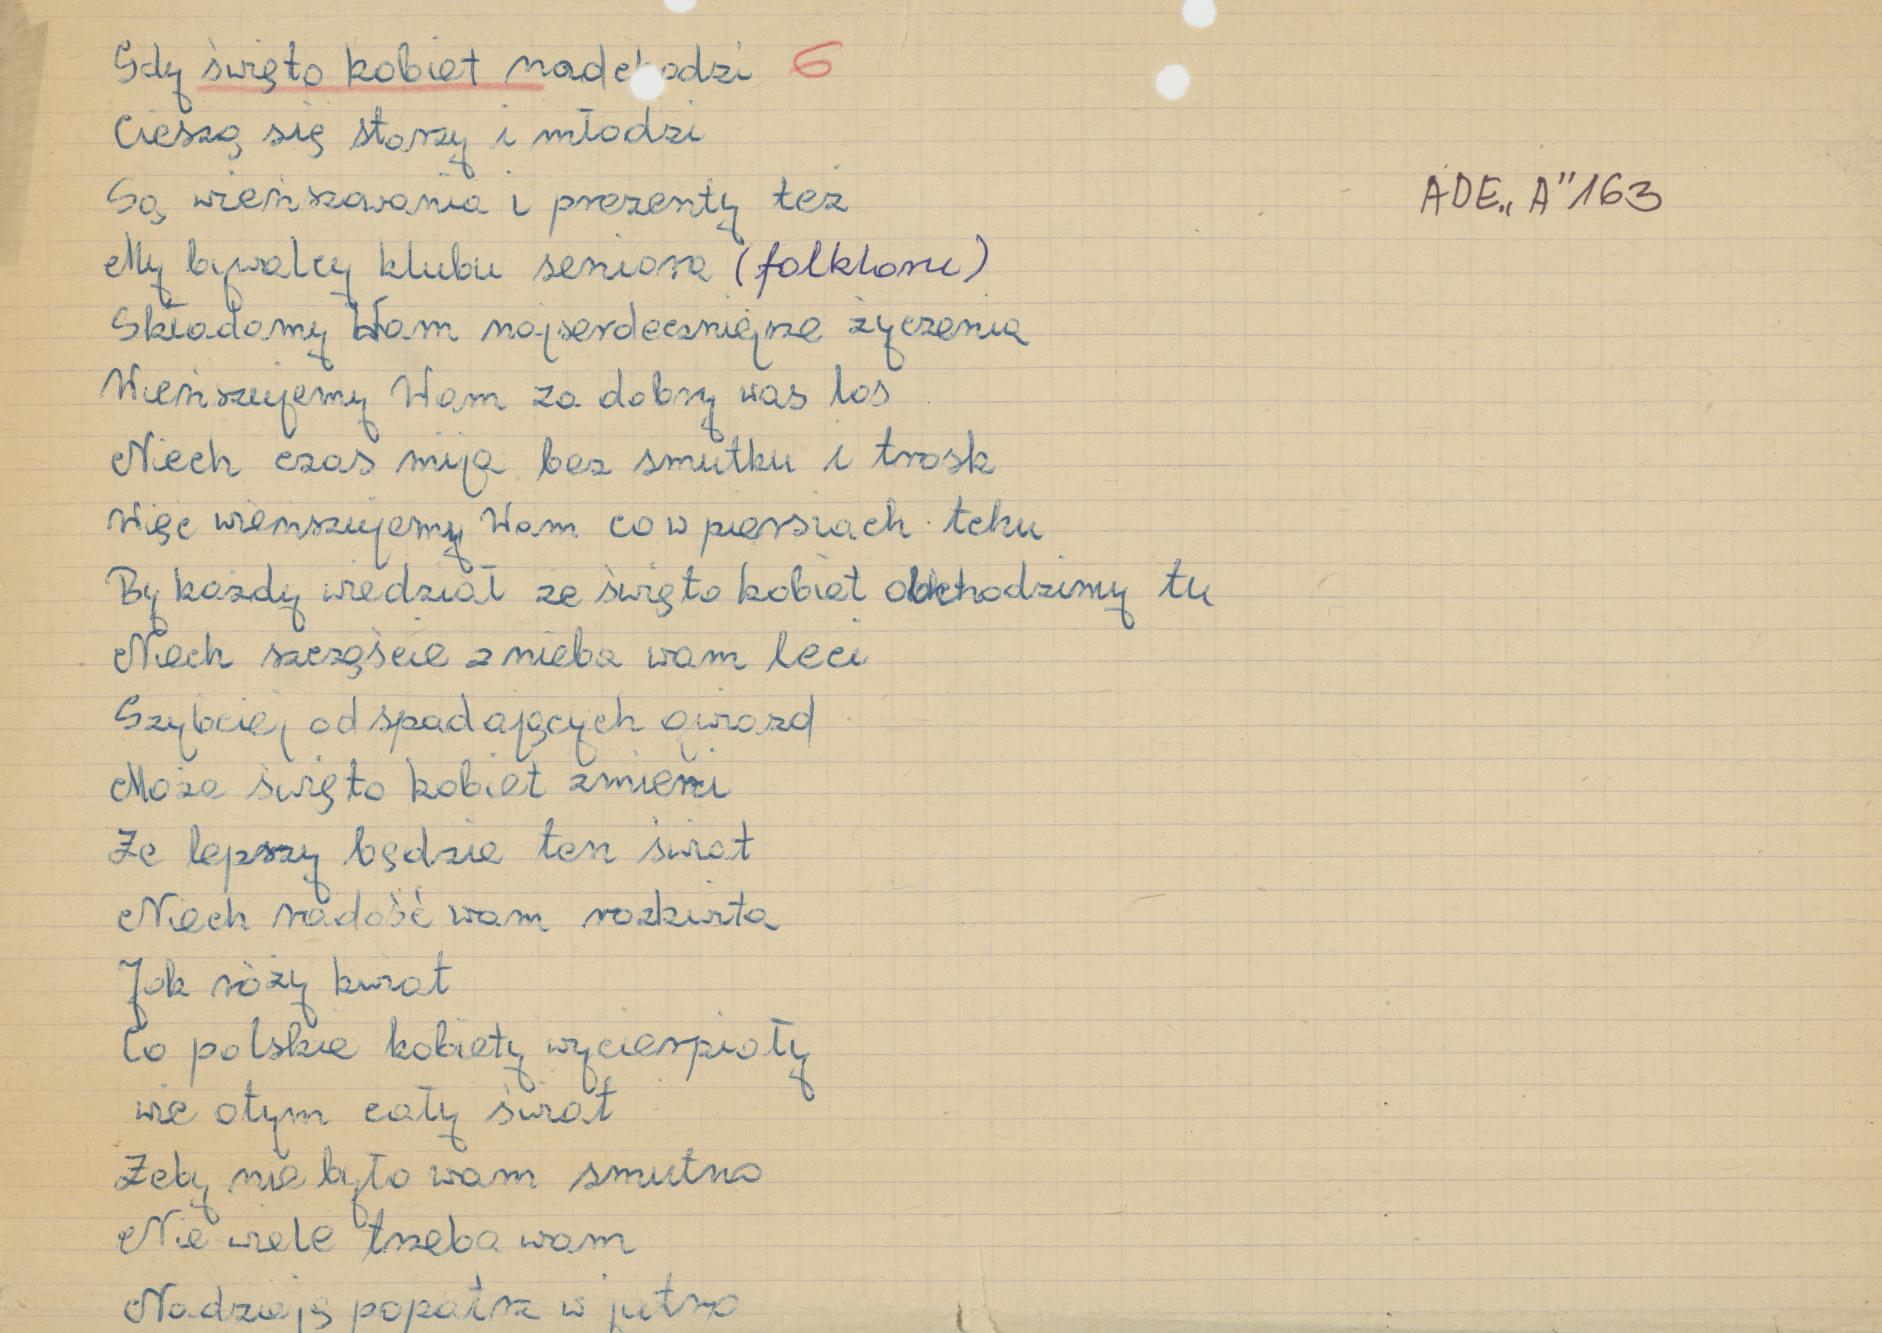 Gdy święto kobiet nadchodzi 6
Cieszą się starzy i młodzi
Są wieńszowania i prezenty też
ADE„A"163
My bywalcy klubu seniora (folkloru)
Składamy Wam najserdeczniejsze życzenia
Wieńszujemy Wam za dobry was los
Niech czas mija bez smutku i trosk
Więc wiemszujemy Wam co w piersiach tchu
By kazdy wiedział ze święto kobiet obchodzimy tu
Niech szczęście z nieba wam leci
Szybciej od spadających gwiazd
Może święto kobiet zmieni
Ze lepszy będzie ten świat
Niech radość wam rozkwita
Jak róży kwiat
Co polskie kobiety wycierpiały
wie otym cały świat
Zeby nie było wam smutno
Nie wiele trzeba wam
Nadzieją popatrz w jutro